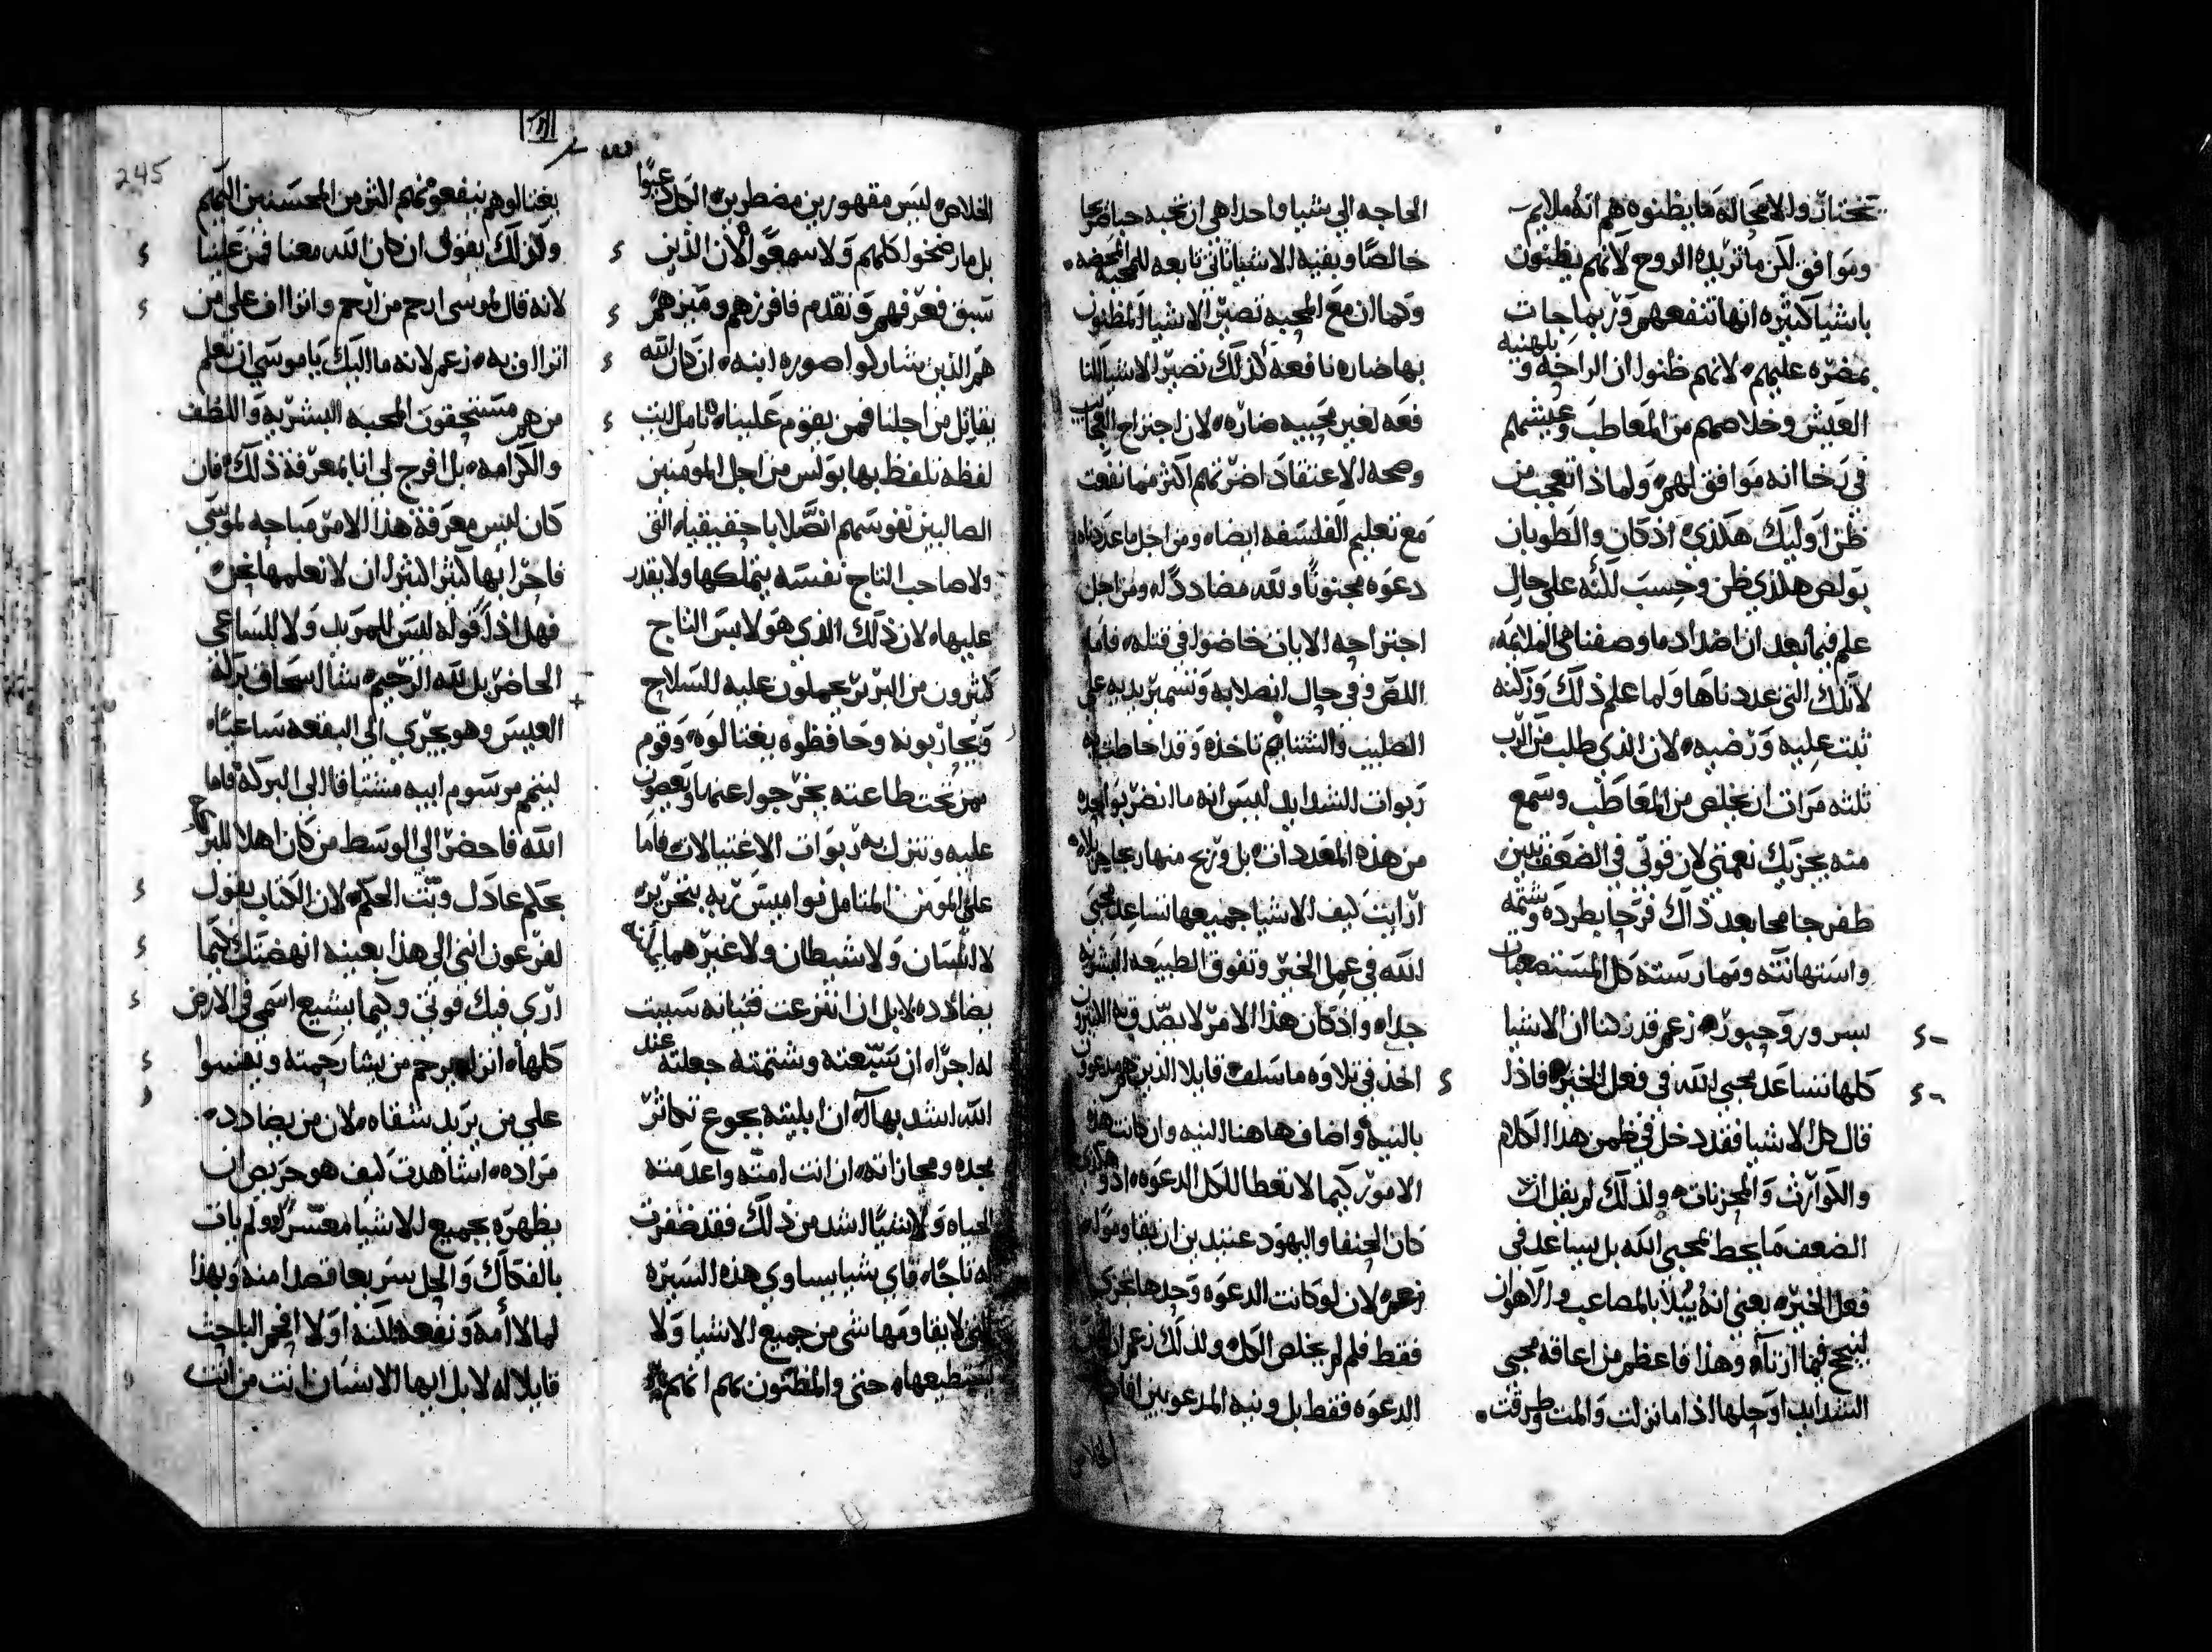 تختبات ولا محاله ما يظنوه هم انه ملايم
وموافق لكن ما تريده الروح لانهم يظنون
باشيا كثيره انها تنفعهم وربما جات
بمضره عليهم لانهم ظنوا ان الراحه و بلهنيه
العيش وخلاصهم من المعاطب وعيشهم
في رخا انه موافق لهم ولماذا تعجب من
ظن اوليك هكذي اذ كان والطوبان
بولص هكذي ظن وحسب لكنه علي حال
علم فيما بعد ان اضداد ما وصفنا هي الملايمه
لاتلك التي عددناها ولما علم ذلك وزكنه
ثبت عليه ورضيه لان الذي طلب من الرب
ثلثه مرات ان يخلص من المعاطب وسمع
منه يجزيك نعمتي لان قوتي في الضعف تبين
طفر جامحا بعد ذاك فرحا بطرده وشتمه
واستهانته وممارسته كل المستصعبات
بسرور وحبور زعم قد زكنا ان الاشيا
كلها تساعد محبي الله في فعل الخير فاذا
قال كل الاشيا فقد دخل في ضمن هذا الكلام
والكوارث والمحزنات ولذلك لم يقل ان
الضعف ما يحط بمحبي الله بل يساعد في
فعل الخير يعني انه يبلا بالمصاعب والاهوان
لينجح فيما ارتاه وهذا فاعظم من اعاقه مجي
الشدايد او حلها اذا ما نزلت والمت وطرقت
الحاجه الي شيا واحدا هي ان نحبه حبا صريحا
خالصا وبقيه الاشيا تاتي تابعه للمحبه المحضه
وكما ان مع المحبه تصير الاشيا المظنون
بها ضاره نافعه كذلك تصير الاشيا النا
فعه لغير محبيه ضاره لان اجتراح العجايب
وصحه الاعتقاد اضر بهم اكثر مما نفعت
مع تعليم الفلسفه ايضا ومن اجل ما عددناه
دعوه مجنونا ولله مضاددا له ومن اجل
اجتراحه الايات خاضوا في قتله فاما
اللص وفي حال انصلابه وتسمير يديه علي
الصليب والشتايم تاخذه وقد احاطت به
ربوات الشدايد ليس انه ما انضر بواحده
من هذه المعددات بل وربح منها ربحا جزيلا
ارايت كيف الاشيا جميعها تساعد محبي
الله في عمل الخير وتفوق الطبيعه البشريه
جدا واذ كان هذا الامر لا يصدق به الكثيرون
اخذ في تلاوه ما سلف قايلا الذين هم مدعوون
بالنيه واضاف هاهنا النيه وان كانت هذه
الامور كيما لا تعطا للكل الدعوه اذ وهكذي
كان الحنفا واليهود عتيدين ان يقاوموا له
زعم لان لو كانت الدعوه وحدها تجزي
فقط فلم لم يخلص الكل ولذلك زعم ان
الدعوه فقط بل ونيه المدعويين افادت
الخلاص
الخلاص ليس مقهورين مضطرين الكل عبوا
بل ما رضخوا كلهم ولا سمعوا لان الذين
سبق فعرفهم وتقدم فافرزهم وميزهم
هم الذين شاركوا صوره ابنه ان كان الله
يقاتل من اجلنا فمن يقوم علينا تامل ليت
لفظه تلفظ بها بولس من اجل المومنين
الصالبين نفوسهم انصلابا حقيقيا التي
ولا صاحب التاج نفسه يتملكها ولا يقدر
عليها لان ذلك الذي هو لابس التاج
كثيرون من البربر يحملون عليه السلاح
ويحاربونه وحافظوه يغتالوه وقوم
ممن تحت طاعته يخرجوا عنها ويعصون
عليه وتنزل به ربوات الاغتيالات فاما
علي المومن المتامل نواميس ربه بتحرير
لا انسان ولا شيطان ولا غيرهما يمكنه
يضادده لا بل ان انتزعت قنيانه سببت
له اجرا ان سبعته وشتمته جعلته عند
الله اشد بها ان ابليته بجوع تكاثر
مجده ومجازاته ان انت امته واعدمته
الحياه ولا شيا اشد من ذلك فقد ضفرت
له تاجا فاي شيا يساوي هذه السيره
التي لا يقاومها شي من جميع الاشيا ولا
يستطيعها حتي والمظنون بهم انهم
يغتالوهم ينفعونهم اكثر من المحسنين اليهم
ولذلك يقول ان كان الله معنا فمن علينا
لانه قال لموسي ارحم من ارحم واتراف علي من
اتراف به زعم لانه ما اليك يا موسي ان تعلم
من هم مستحقون المحبه البشريه واللطف
والكرامه بل افرج لي انا بمعرفة ذلك فان
كان ليس معرفة هذا الامر مباحه لموسي
فاحرا بها كثيرا كثيرا ان لا نعلمها نحن
فهكذا قوله ليس للمريد ولا للساعي
الحاضر بل لله الرحيم شا اسحاق بركة
العيس وهو يجري الي البقعه ساعيا
ليتمم مرسوم ابيه مشتاقا الي البركه فاما
الله فاحضر الي الوسط من كان اهلا للبركه
بحكم عادل وبت الحكم لان الكتاب يقول
لفرعون انني الي هذا بعينه انهضتك كيما
اري فيك قوتي وكيما يشيع اسمي في الارض
كلها اترا يرحم من يشا رحمته ويقسوا
علي من يريد شقاه لان من يضادد
مراده اشاهدت كيف هو حريص ان
يظهره بجميع الاشيا معتسرا ولم يات
بالفكاك والحل سريعا قصدا منه وبهذا
لما لاامه ونفعه لكنه اولا افحم الباحث
قايلا له لا بل ايها الانسان انت من انت
245